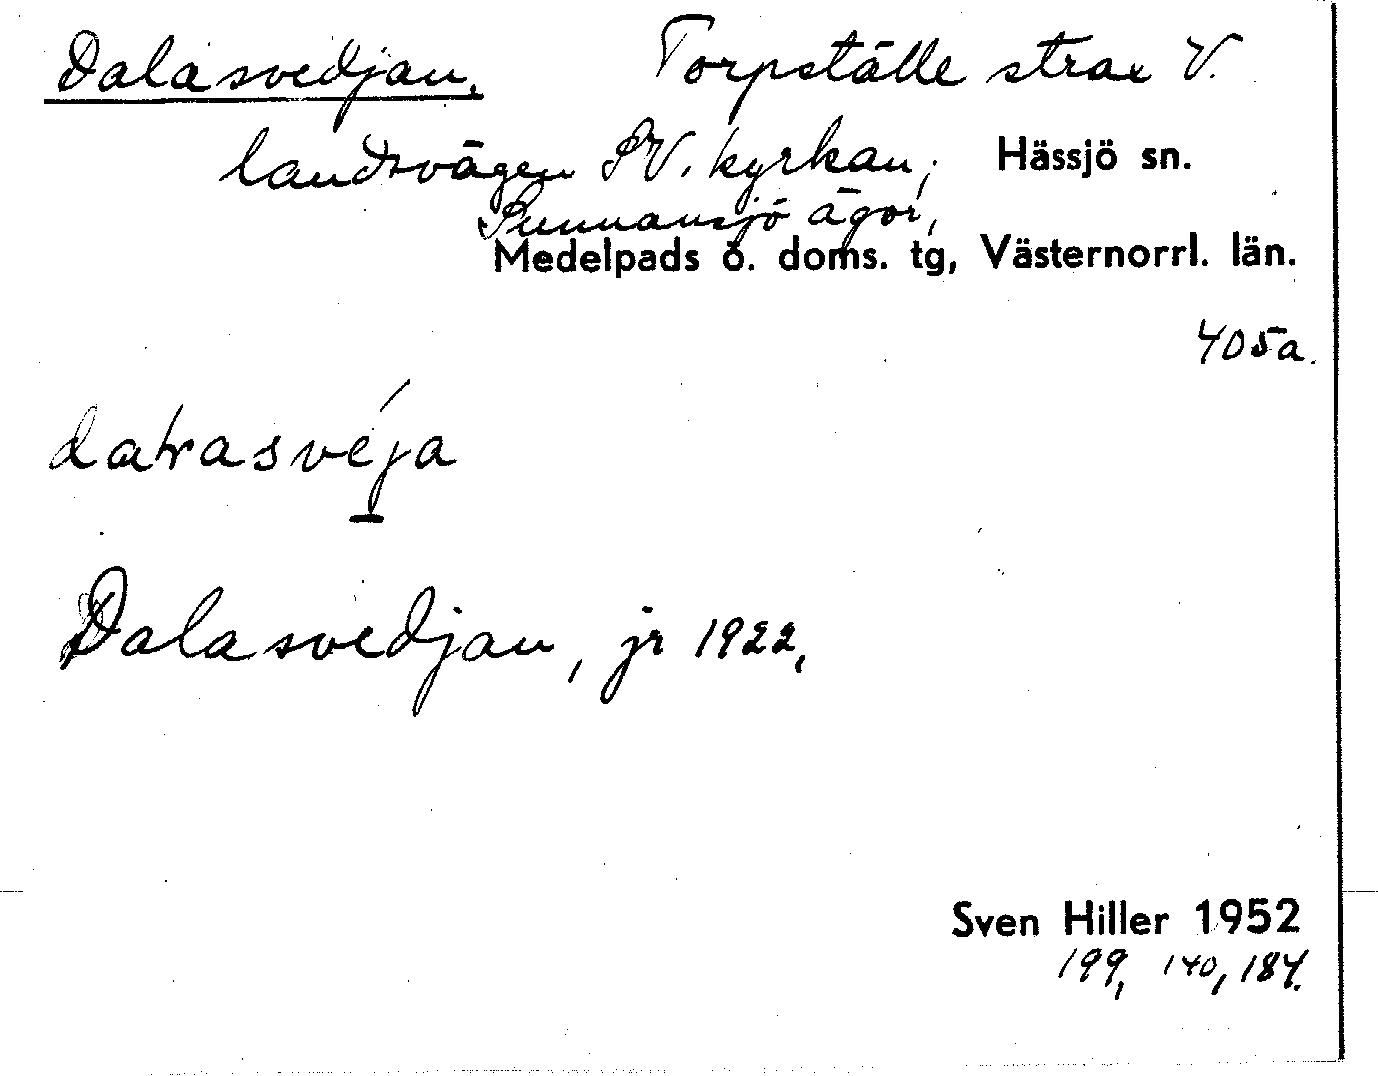 Dalasvedjan, Torpställe strax V.
landsvägen SV. kyrkan; Hässjö sn.
Sunnansjö ägor,
Medelpads ö. doms. tg, Västernorrl. län.
405a.
Dalasvedjan, jr 1922,
Sven Hiller 1952
199, 140, 184.